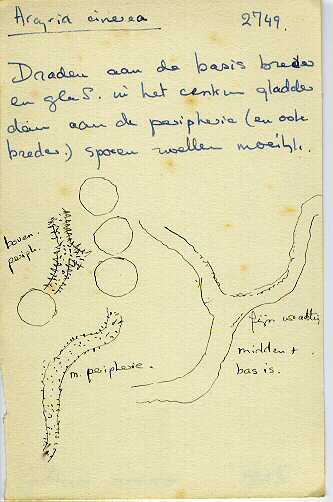 Arcyria cinerea 2749.
Draden aan de basis breder
en glad. in het centrum gladder
dan aan de peripherie (en ook
breder.) sporen zwellen moeilk.
boven.
periph.
m. peripherie.
fijn
midden +
basis.